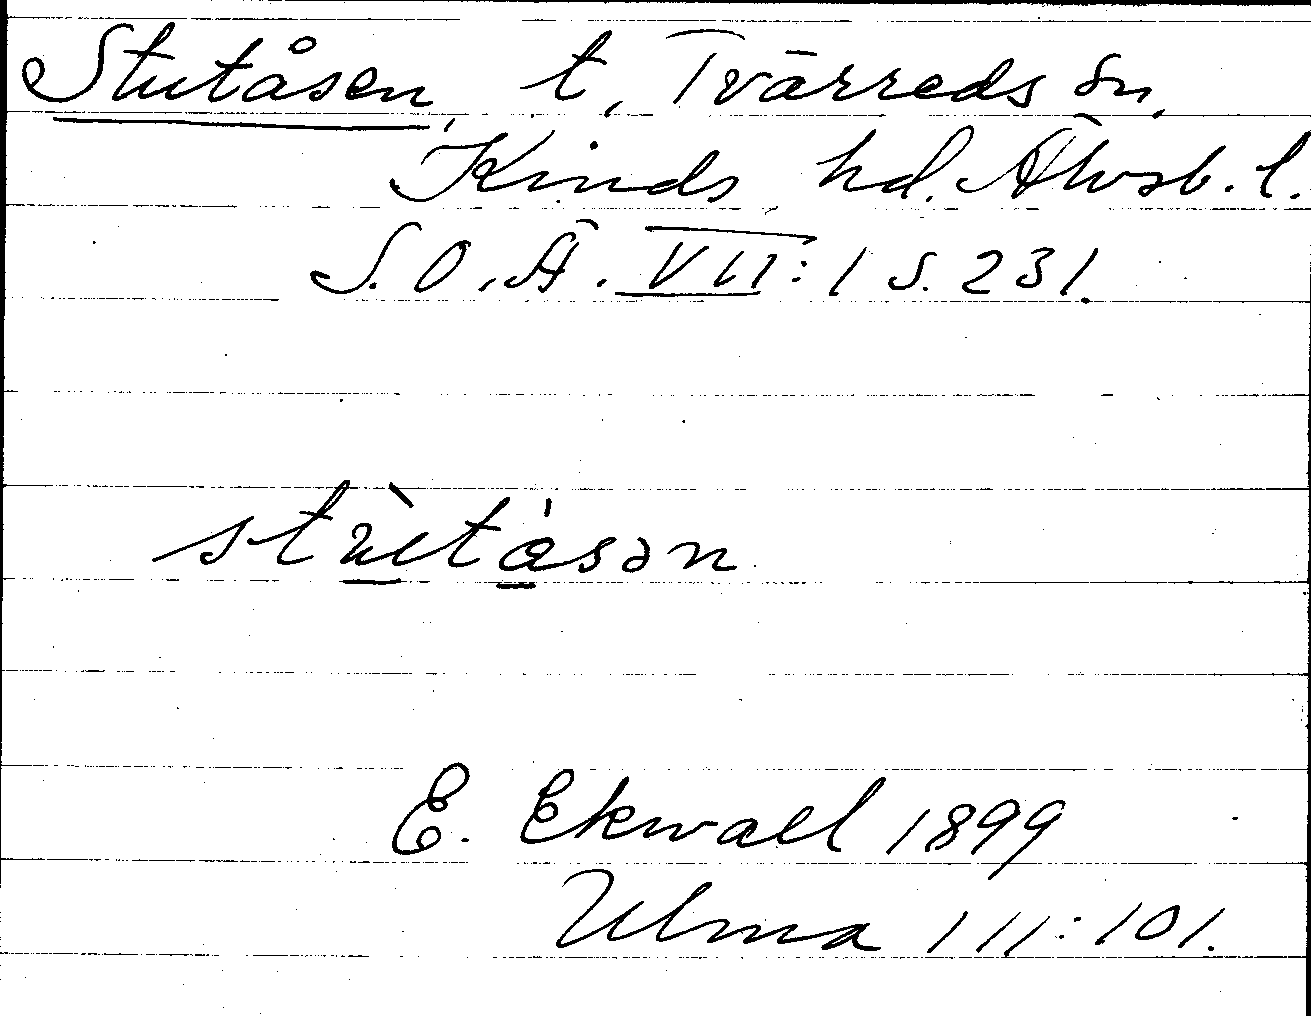 Stutåsen, t, Tvärreds sn,
Kinds hd. Älvsb. l.
S.O.Ä. VII: 1 s. 231.
stùtásən
E. Ekwall 1899
Ulma 111:101.